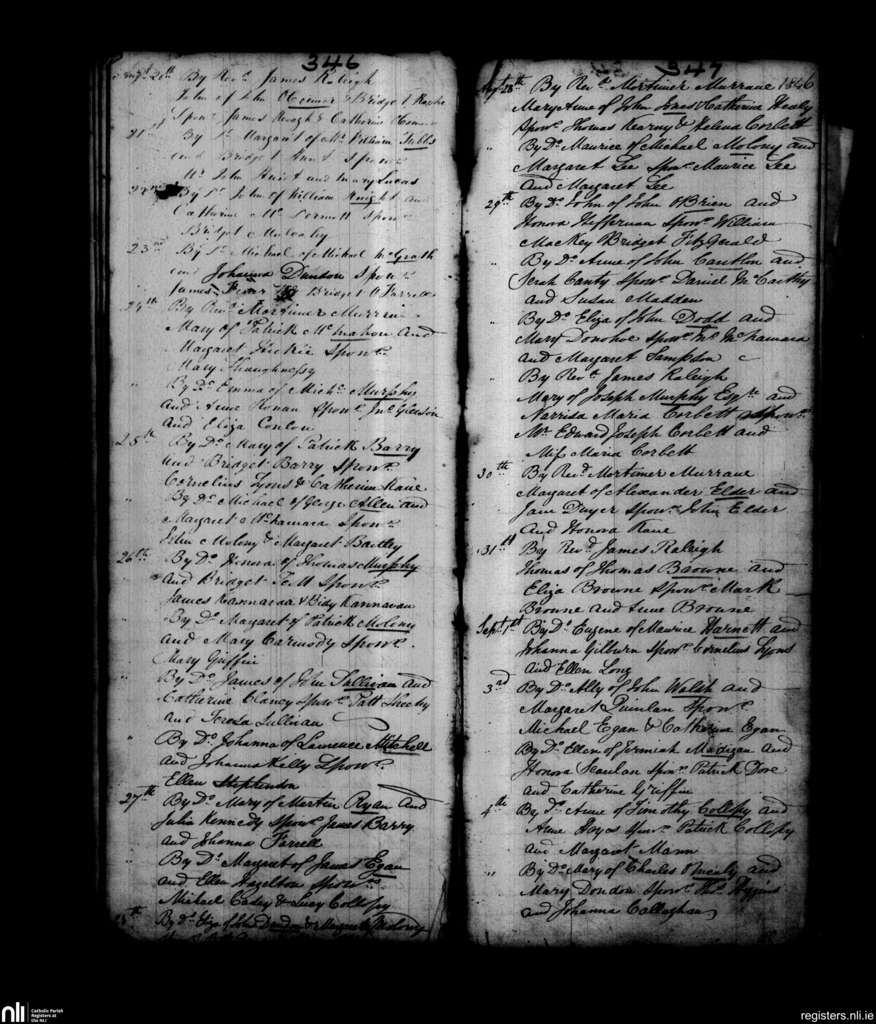 346
Augt 20th By Revd James Raleigh
John of John OConnor & Bridget
Spon James Keogh & Catherine OConnor
21st By Do Margaret of Mr William Tubbs
and Bridget Hunt Spons
Mr John Hunt and Mary Lucas
22nd By Do John of William Knight and
Catherine Mc Dermott Spons
Bridget Mulcahy
23rd By Do Michael of Michael McGrath
and Johanna Dundon Spons
James & Bridget O Farrell
24th By Revd Mortimer Murrane
Mary of Patrick McMahon and
Margaret Hickie Spons
Mary Shaughnessy
" By Do Emma of Michl Murphy
and Anne Ronan Spons Jno Gleeson
and Eliza Conlon
25th By Do Mary of Patrick Barry
and Bridget Barry Spons
Cornelius Lyons & Catherine Kane
" By Do Michael of George Allen and
Margaret McNamara Spons
John Molony & Margaret Bartley
26th By Do Honora of Thomas Murphy
and Bridget Spons
James Kannavan & Bidy Kannavan
" By Do Margaret of Patrick Molony
and Mary Carmody Spons
Mary Griffin
" By Do James of John Sullivan and
Catherine Clancy Spons Patt Sheehy
and Teresa Sullivan
" By Do Johanna of Laurence Mitchell
and Johanna Kelly Spons
Ellen Stephenson
27th By Do Mary of Martin Ryan and
Julia Kennedy Spons James Barry
and Johanna Farrell
By Do Margaret of James Egan
and Ellen Hazelton Spons
Michael Casey & Lucy Collopy
28th By Do Eliza of John Dundon & Margaret Molony
347
Augt 28th By Revd Mortimer Murrane 1846
Mary Anne of John Jones & Catherine Healy
Spons Thomas Kearny & Helena Corbett
" By Do Maurice of Michael Molony and
Margaret Lee Spons Maurice Lee
and Margaret Lee
29th By Do John of John OBrien and
Honora Heffernan Spons William
Mackey Bridget FitzGerald
" By Do Anne of John Cantlon and
Sarah Canty Spons Daniel McCarthy
and Susan Madden
" By Do Eliza of John Dodd and
Mary Donohoe Spons Ml McNamara
and Margaret Sampson
" By Revd James Raleigh
Mary of Joseph Murphy Esqre and
Narrida Maria Corbett Spons
Mr Edward Joseph Corbett and
Miss Maria Corbett
30th By Revd Mortimer Murrane
Margaret of Alexander Elder and
Jane Dwyer Spons John Elder
and Honora Kane
31st By Revd James Raleigh
Thomas of Thomas Browne and
Eliza Browne Spons Mark
Browne and Anne Browne
Septr 1st By Do Eugene of Maurice Harnett and
Johanna Spons Cornelius Lyons
and Ellen Long
3rd By Do Ally of John Walsh and
Margaret Quinlan Spons
Michael Egan & Catherine Egan
" By Do Ellen of Jeremiah Madigan and
Honora Scanlan Spons Patrick Dore
and Catherine Griffin
4th By Do Anne of Timothy Collopy and
Anne Hayes Spons Patrick Collopy
and Margaret Mann
" By Do Mary of Charles and
Mary Dondon Spons Thos Higgins
and Johanna Callaghan
nli
Catholic Parish
Registers at
the NLI
registers.nli.ie